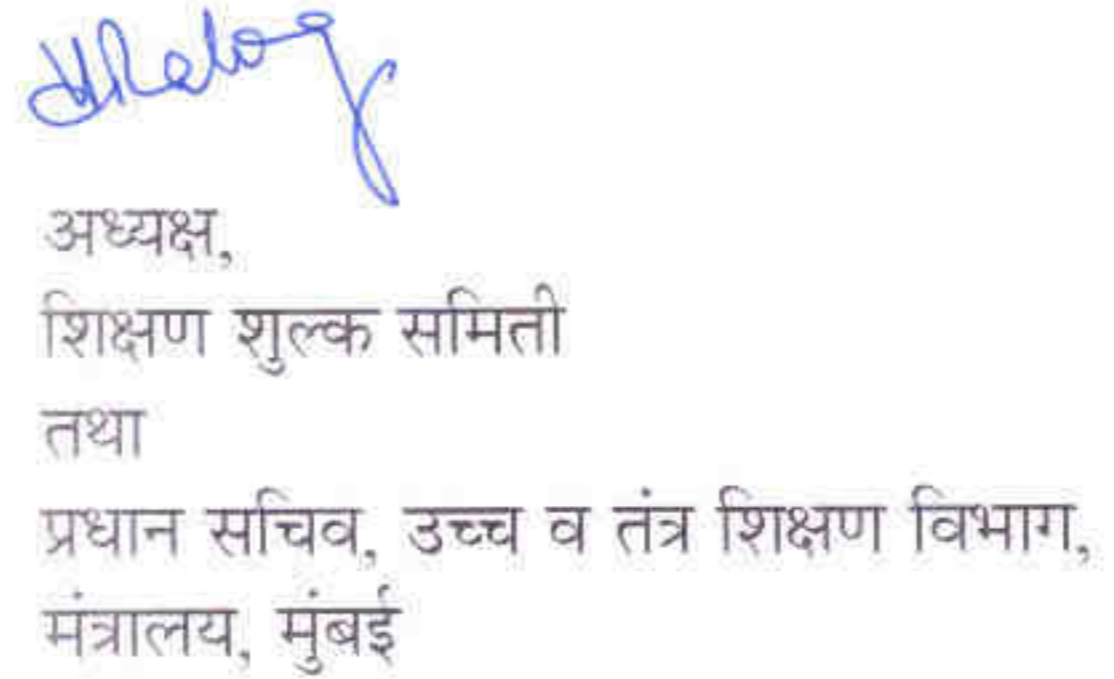 अध्यक्ष,
शिक्षण शुल्क समिती
तथा
प्रधान सचिव, उच्च व तंत्र शिक्षण विभाग,
मंत्रालय, मुंबई